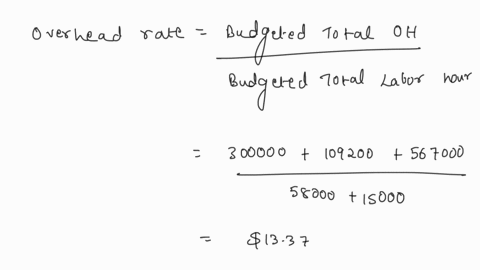 Overhead rate = Budgeted Total OH
Budgeted Total Labor hour
= 300000 + 109200 + 567000
58000 + 15000
= $13.37